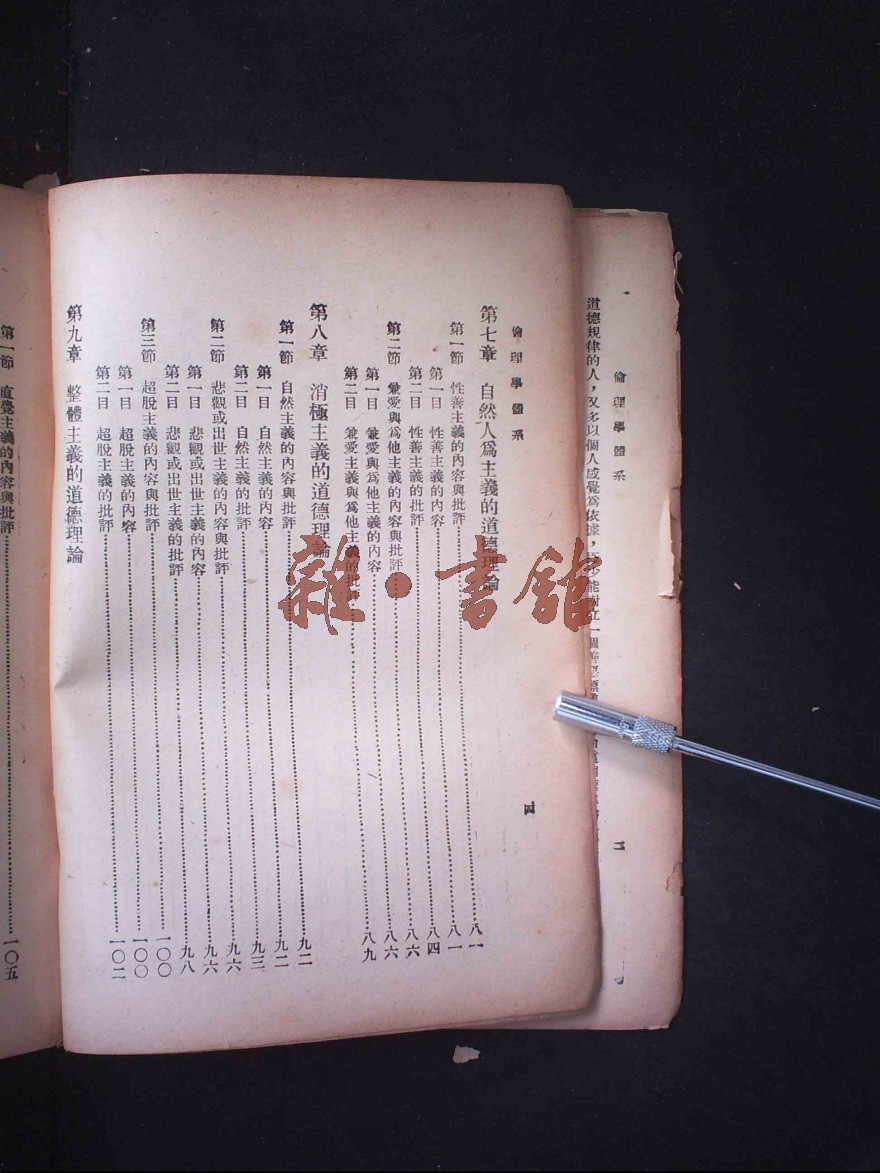 倫理學體系
道德規律的人，又多以個人感覺爲依據，能樹立一個
二
倫理學體系
四
第七章 自然人爲主義的道德理論
第一節 性善主義的內容與批評……八一
第一目 性善主義的內容……八一
第二目 性善主義的批評……八四
第二節 兼愛與爲他主義的內容與批評……八六
第一目 兼愛與爲他主義的內容……八六
第二目 兼愛主義與爲他主義的批評……八九
第八章 消極主義的道德理論
第一節 自然主義的內容與批評……九二
第一目 自然主義的內容……九二
第二目 自然主義的批評……九三
第二節 悲觀或出世主義的內容與批評……九六
第一目 悲觀或出世主義的內容……九六
第二目 悲觀或出世主義的批評……九八
第三節 超脫主義的內容與批評……一〇〇
第一目 超脫主義的內容……一〇〇
第二目 超脫主義的批評……一〇二
第九章 整體主義的道德理論
第一節 直覺主義的內容與批評……一〇五
雜·書館